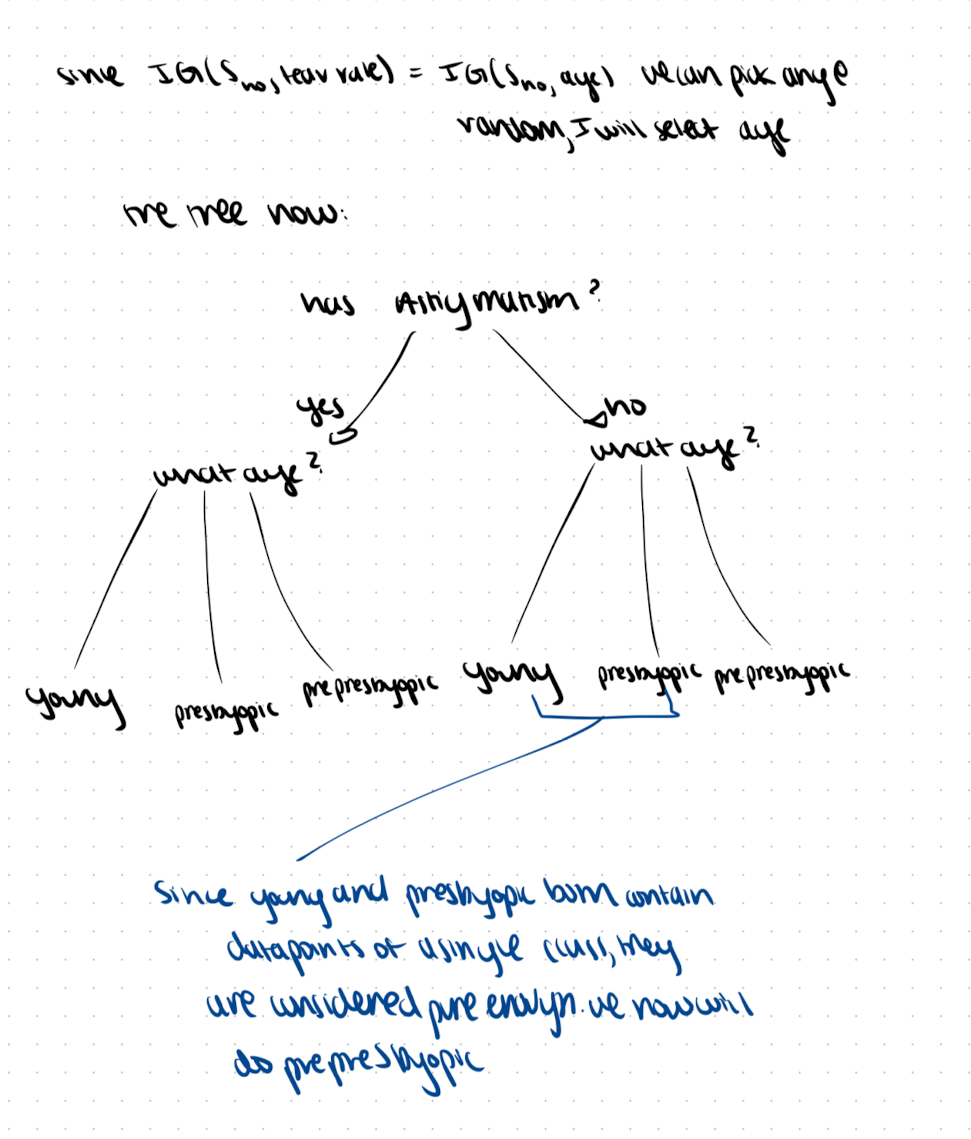 since IG(S_no, tear rate) = IG(S_no, age) we can pick any @
random, I will select age
the tree now:
has Astigmatism?
yes
no
what age?
what age?
young
presbyopic
prepresbyopic
young
presbyopic
prepresbyopic
Since young and presbyopic both contain
datapoints of a single class, they
are considered pure enough. we now will
do prepresbyopic